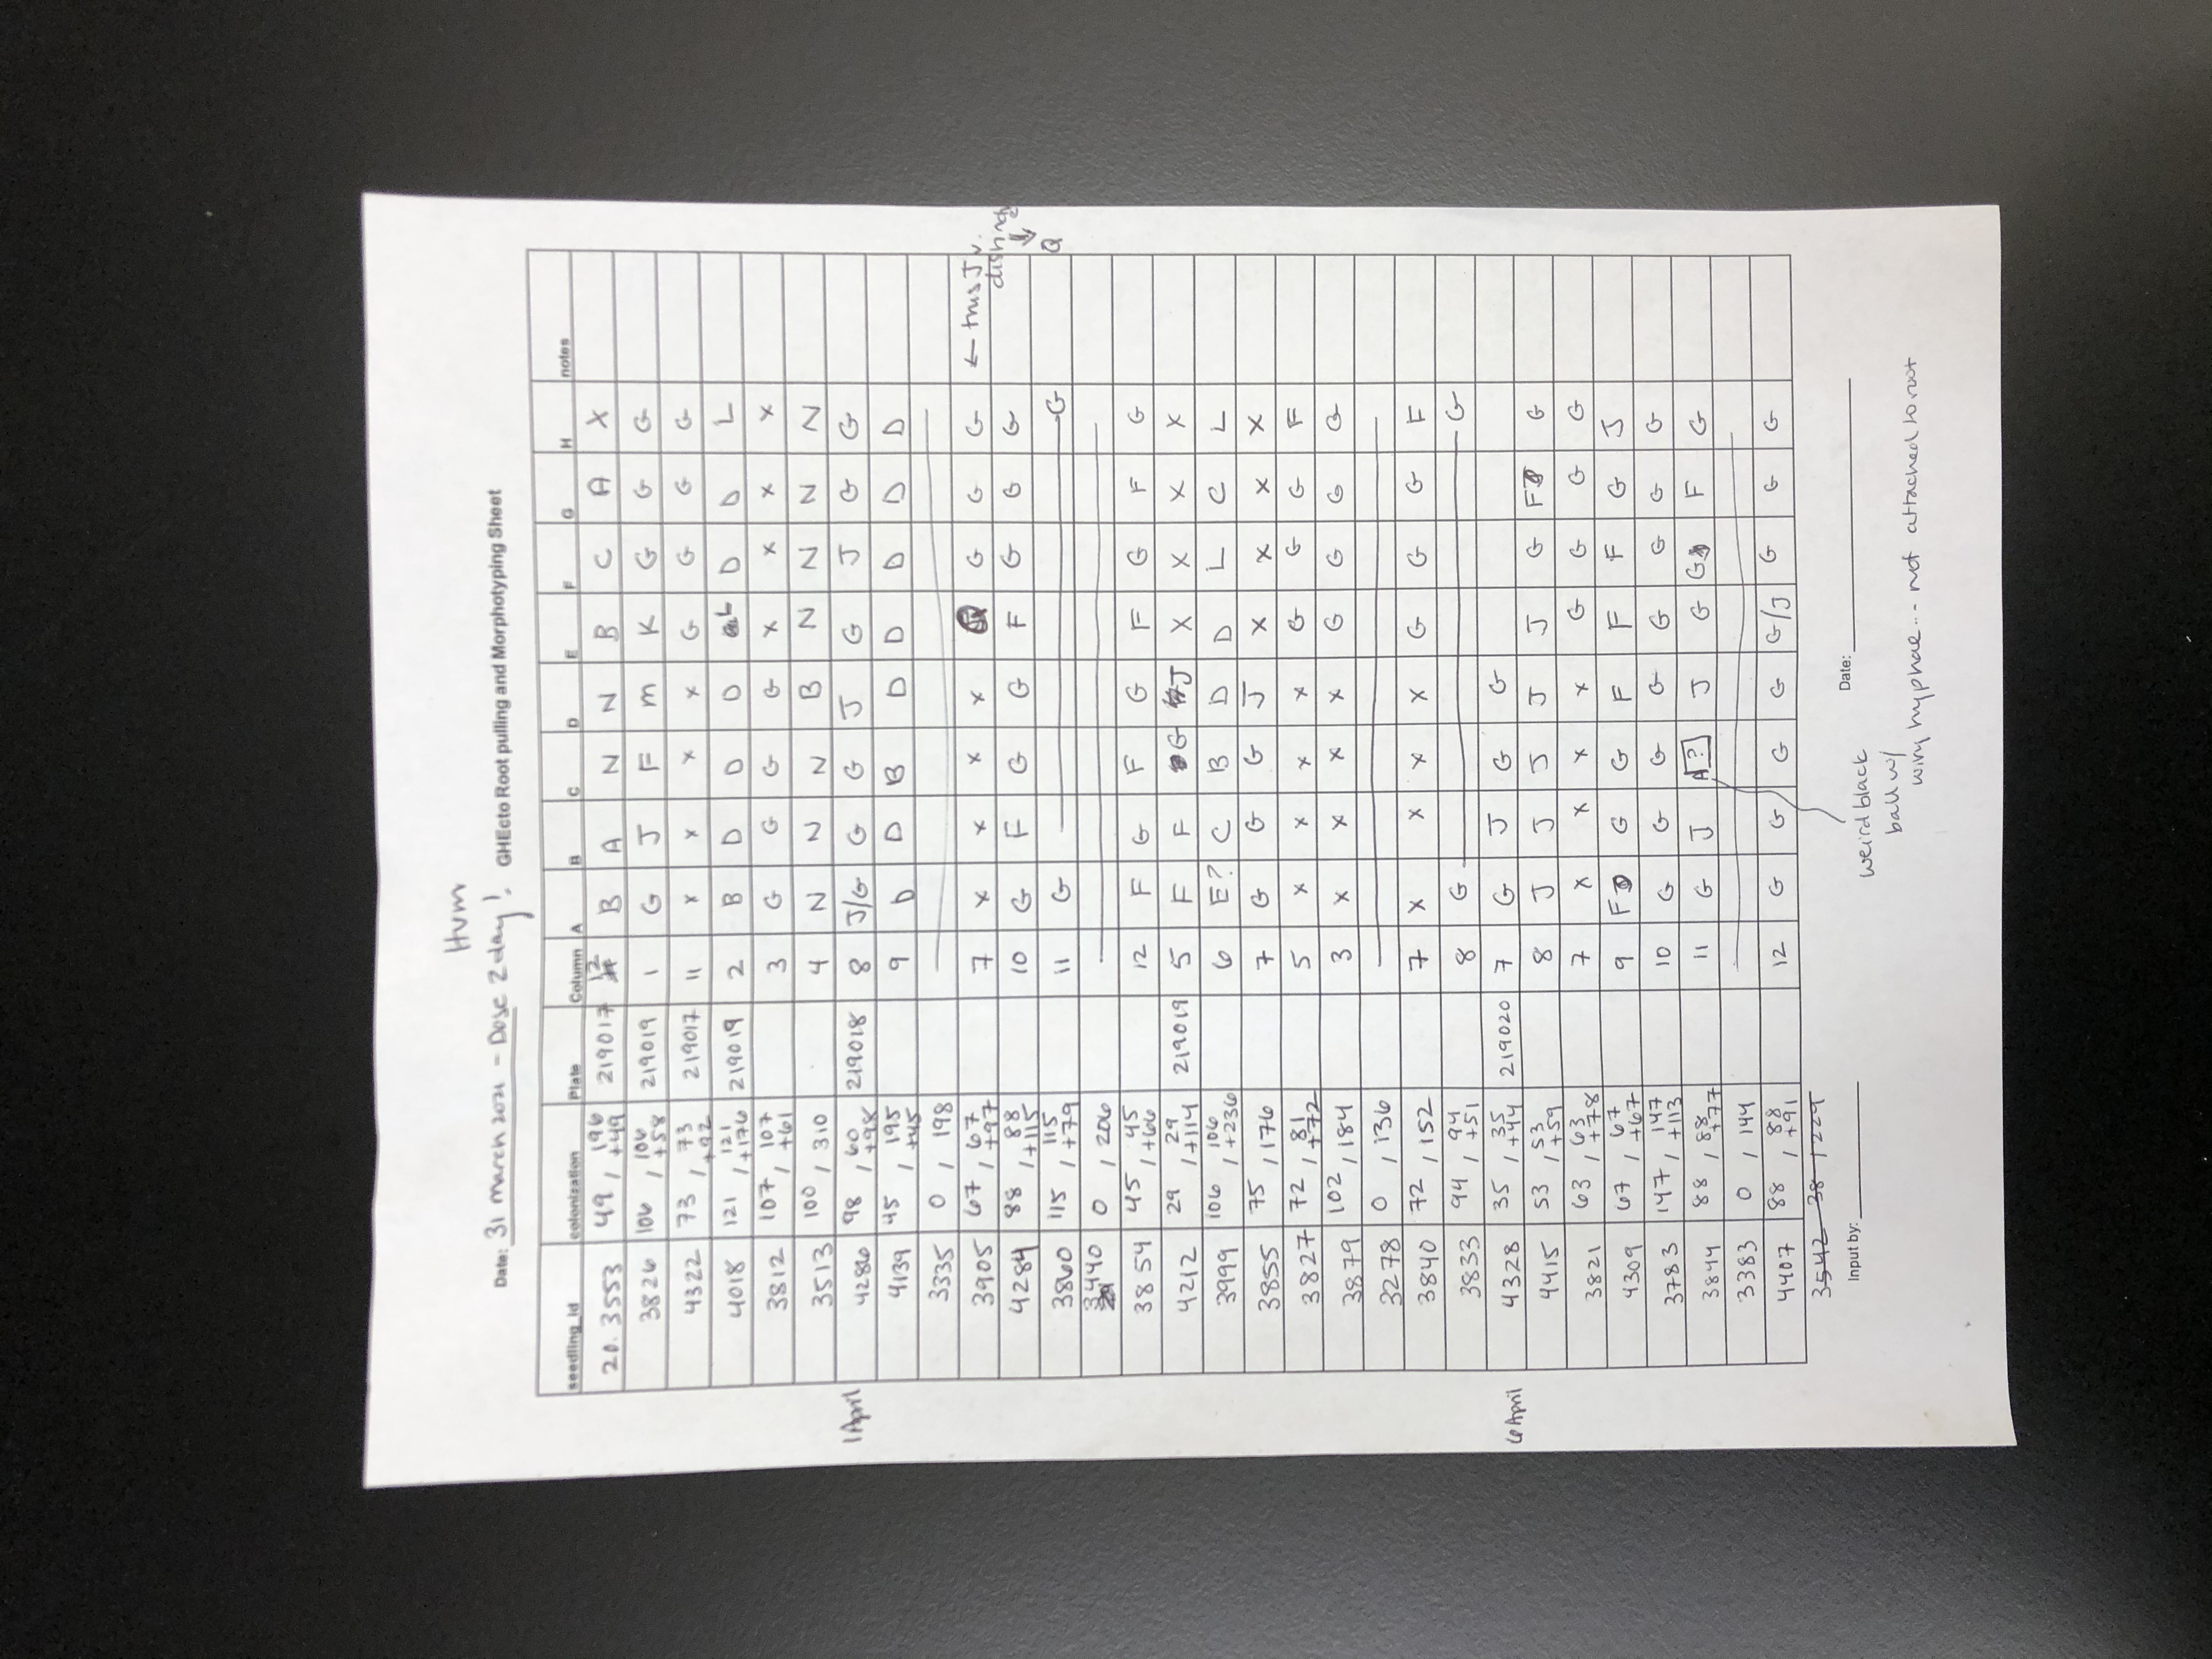 Hum
Date: 31 March 2021 - Dose 2 day! GHEcto Root pulling and Morphotyping Sheet
seedling_id colonization Plate Column A B C D E F G H notes
20.3553 49 / 196 +49 219017 12 B A N N B C A X
3826 106 / 106 +58 219019 1 G J F m K G G G
4322 73 / 73 +92 219017 11 x x x x G G G G
4018 121 / 121 +176 219019 2 B D D D L D D L
3812 107 / 107 +61 3 G G G G x x x x
3513 100 / 310 4 N N N B N N N N
1 April 4286 98 / 60 +98 219018 8 J/G G G J G J G G
4139 45 / 195 +45 9 D D B D D D D D
3335 0 / 198
3905 67 / 67 +97 7 x x x x G G G ← this J v. distinct
4284 88 / 88 +115 10 G F G G F G G G
3860 115 / 115 +79 11 G G Q
3440 0 / 206
3854 45 / 45 +66 12 F G F G F G F G
4212 29 / 29 +114 219019 5 F F G J X X X X
3999 106 / 106 +236 6 E? C B D D L C L
3855 75 / 176 7 G G G J X X X X
3827 72 / 81 +72 5 x x x x G G G F
3879 102 / 184 3 x x x x G G G G
3278 0 / 136
3840 72 / 152 7 X x x x G G G F
3833 94 / 94 +51 8 G G
6 April 4328 35 / 35 +44 219020 7 G J G G
4415 53 / 53 +59 8 J J J J J G F G
3821 63 / 63 +78 7 x x x x G G G G
4309 67 / 67 +67 9 F G G F F F G J
3783 147 / 147 +113 10 G G G G G G G G
3844 88 / 88 +77 11 G J A ? J G G F G
3383 0 / 144
4407 88 / 88 +91 12 G G G G G/J G G G
3542 38 / 229
Input by: Date:
weird black
ball w/
wiry hyphae... not attached to root